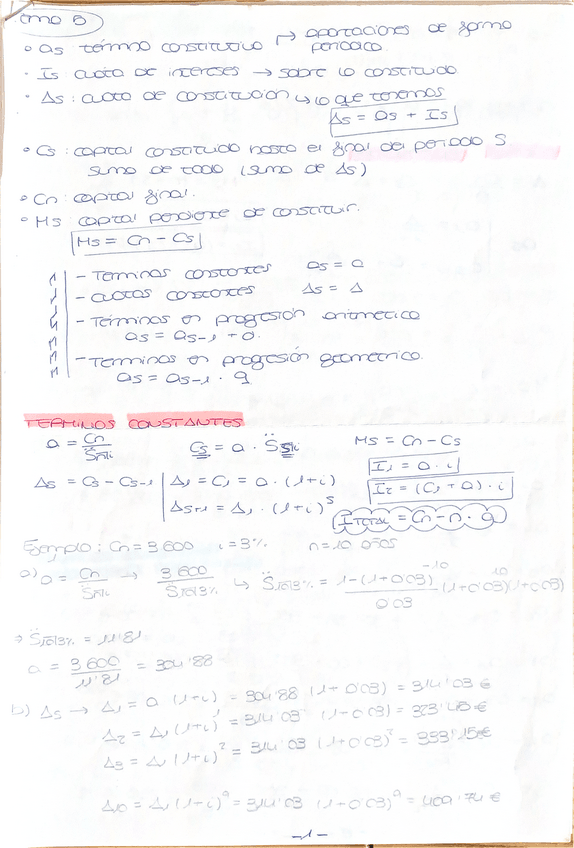 Tema 5
• as término constitutivo ↦ aportaciones de forma periódica.
• Is cuota de intereses → sobre lo constituido.
• Δs : cuota de constitución ↳ lo que tenemos
Δs = as + Is
• Cs : capital constituido hasta el final del periodo S
suma de todo (suma de Δs)
• Cn : capital final.
• Ms : capital pendiente de constituir.
Ms = Cn - Cs
- Términos constantes as = a
- cuotas constantes Δs = Δ
- Términos en progresión aritmética
as = as-1 + d.
- Términos en progresión geométrica.
as = as-1 · q
TERMINOS CONSTANTES
a = Cn / S̈n¬i Cs = a · S̈s¬i Ms = Cn - Cs
I1 = a · i
Δs = Cs - Cs-1 Δ1 = C1 = a · (1+i) I2 = (C1 + a) · i
Δs+1 = Δ1 · (1+i)^s I TOTAL = Cn - n · a
Ejemplo : Cn = 3600 i = 3% n = 10 años
a) a = Cn / S̈n¬i → 3600 / S̈10¬3% ↳ S̈10¬3% = 1-(1+0'03)^-10 / 0'03 (1+0'03)^10 (1+0'03)
→ S̈10¬3% = 11'81
a = 3600 / 11'81 = 304'88
b) Δs → Δ1 = a (1+i) = 304'88 (1+0'03) = 314'03 €
Δ2 = Δ1 (1+i)^1 = 314'03 (1+0'03)^1 = 323'45 €
Δ3 = Δ1 (1+i)^2 = 314'03 (1+0'03)^2 = 333'15 €
Δ10 = Δ1 (1+i)^9 = 314'03 (1+0'03)^9 = 409'74 €
-1-